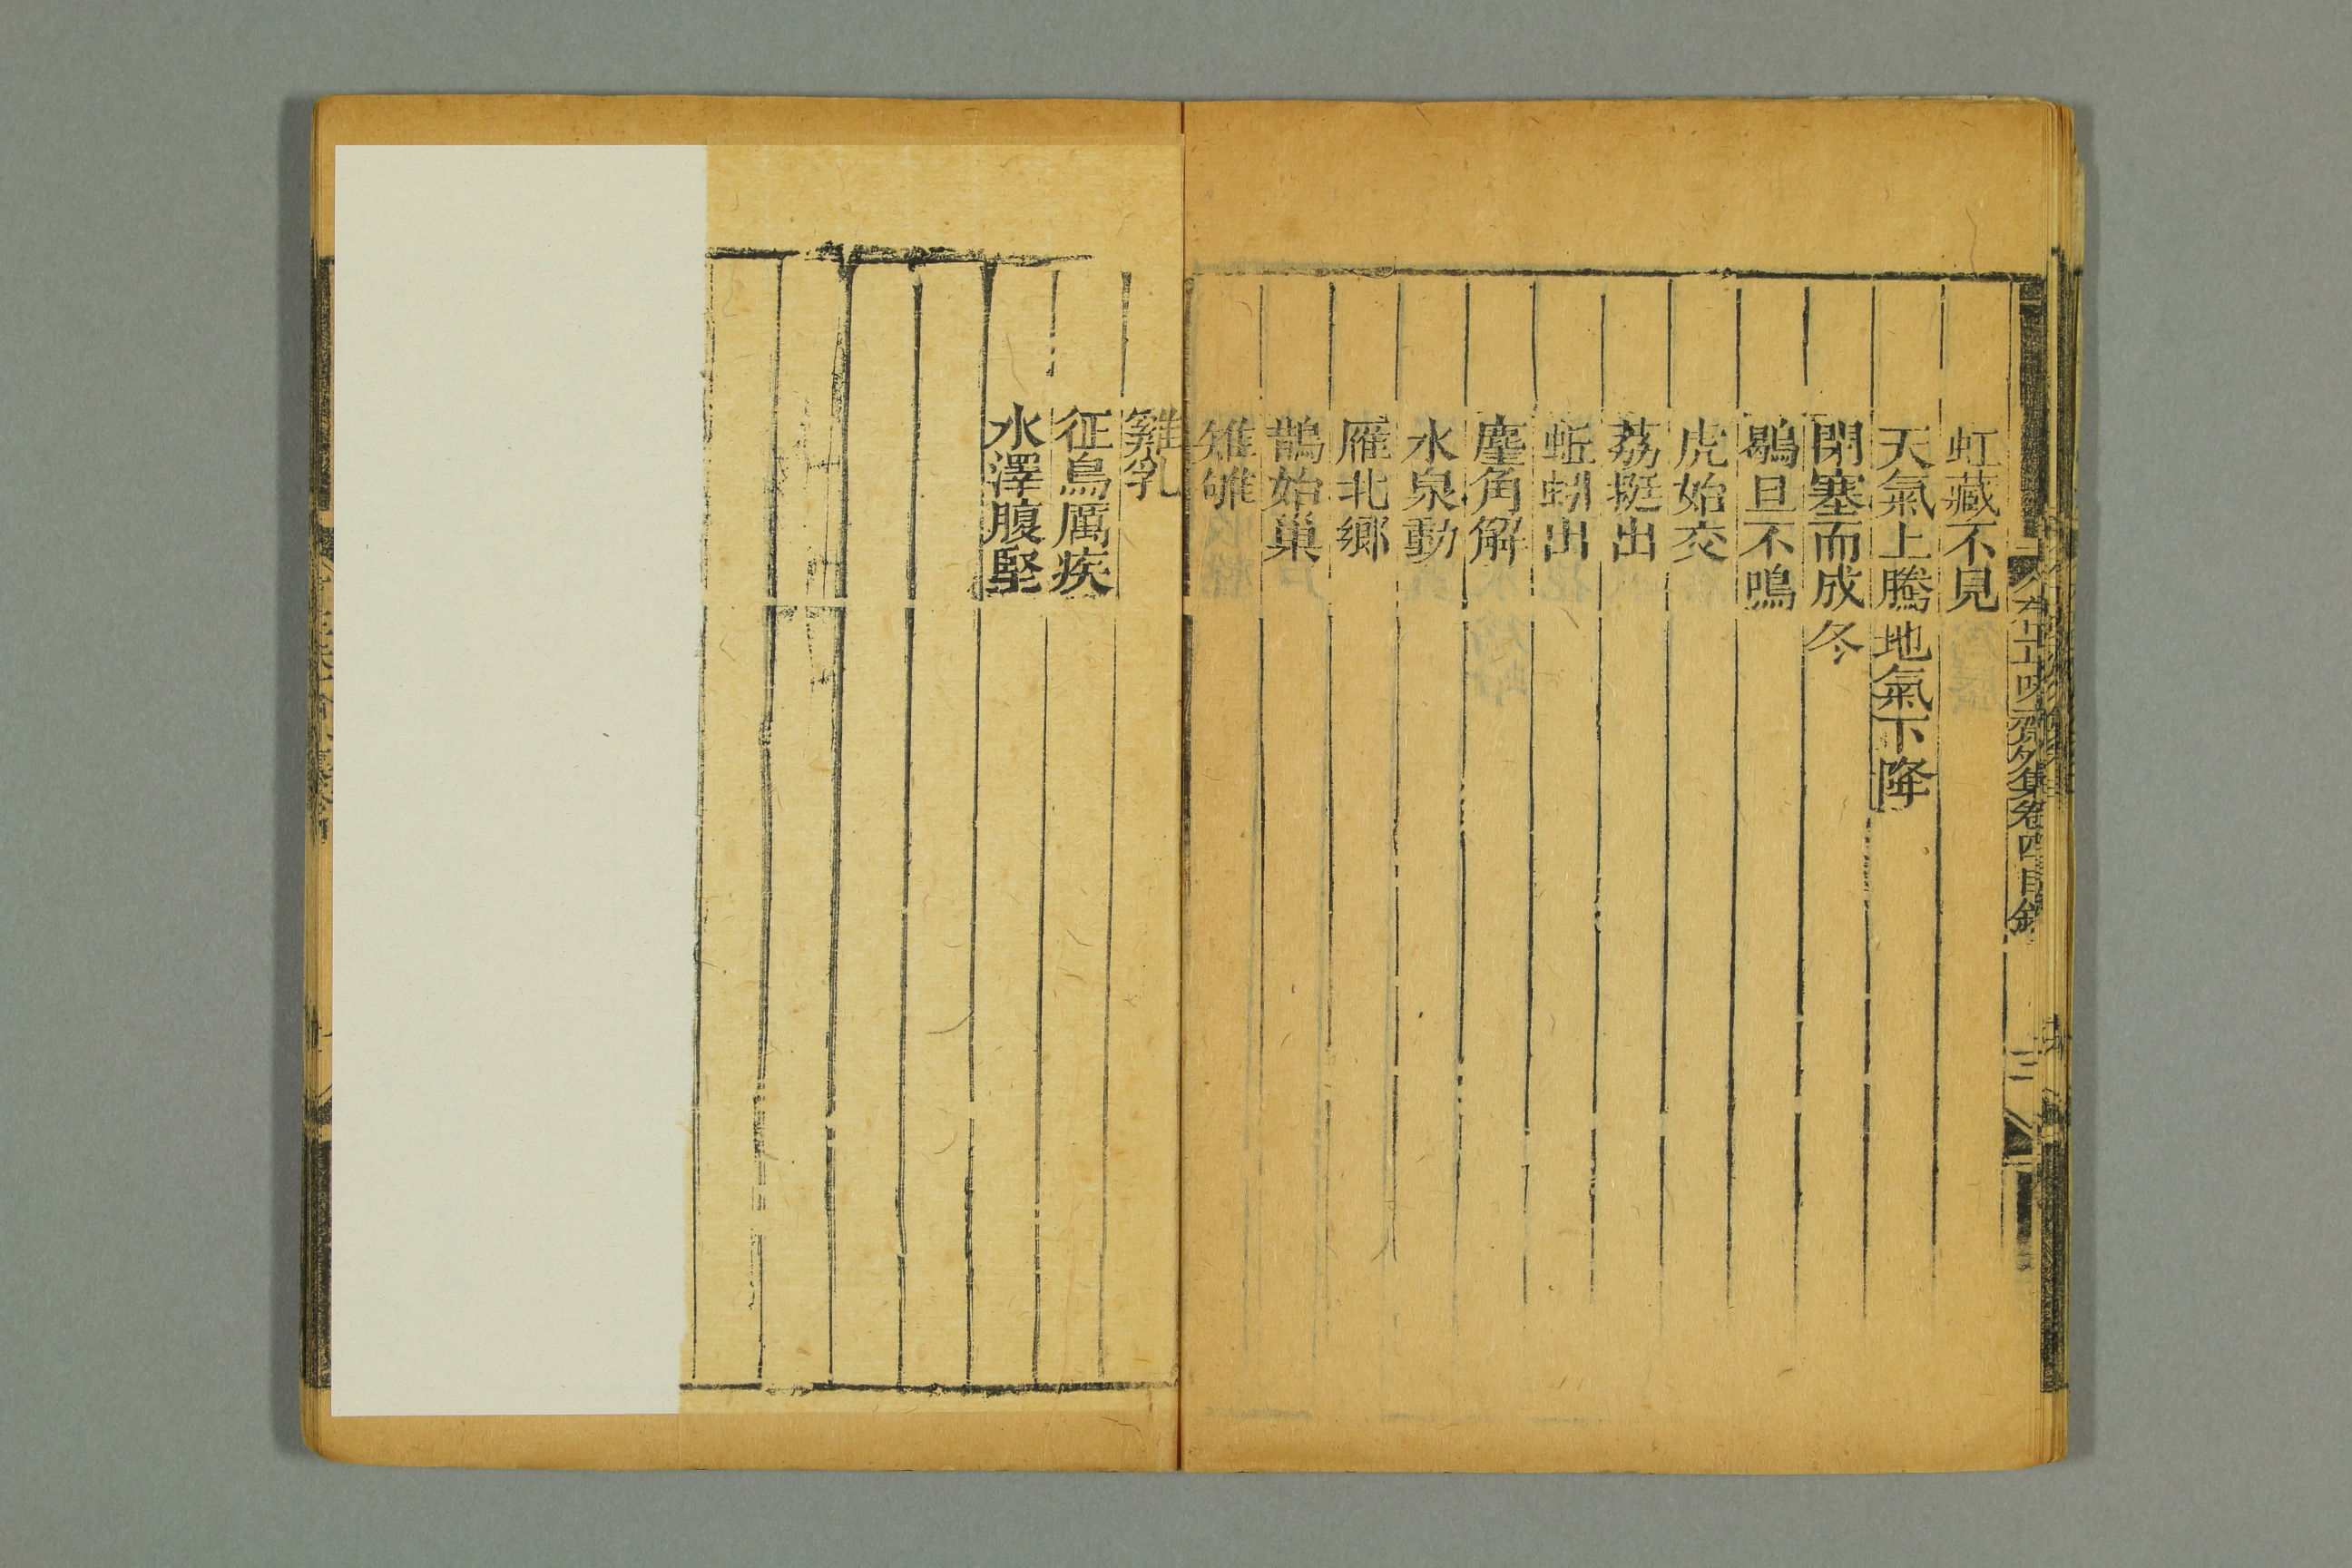 虹藏不見
天氣上騰地氣下降
閉塞而成冬
鶡旦不鳴
虎始交
荔挺出
蚯蚓出
麈角解
水泉動
雁北鄉
鵲始巢
雉雊
雞乳
征鳥厲疾
水澤腹堅